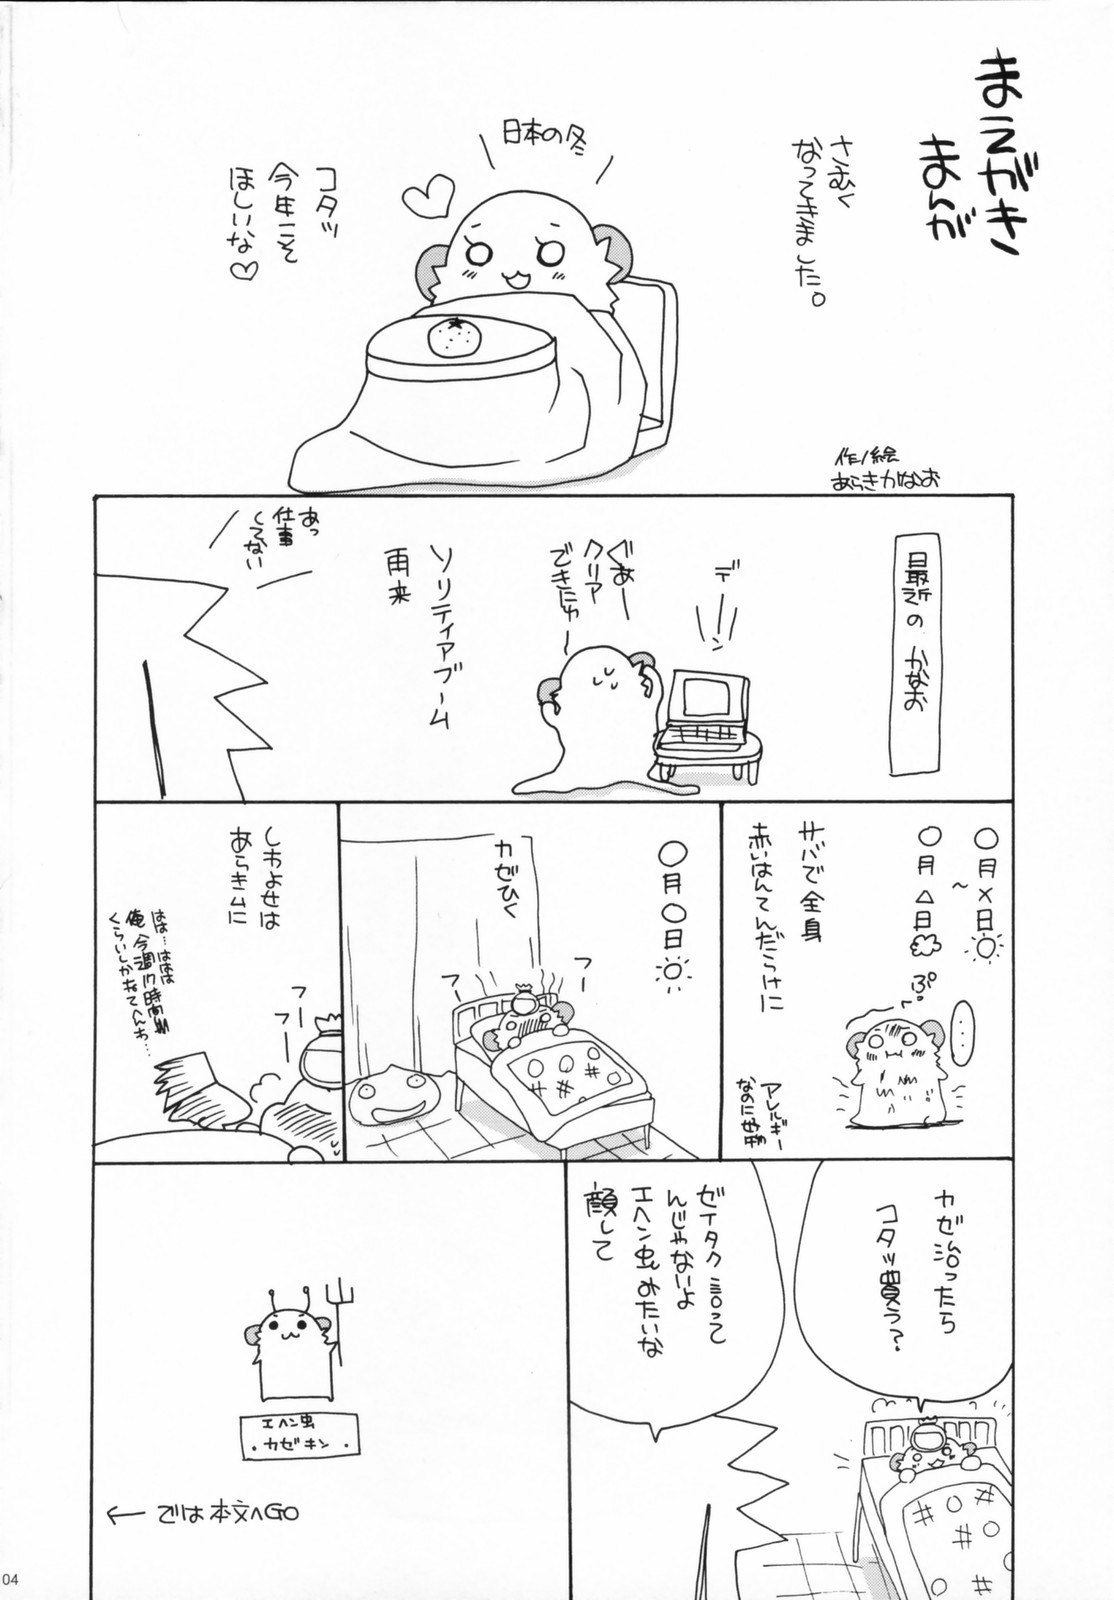 まえがき
まんが
さむく
なってきました。
日本の冬
コタツ
今年こそ
ほしいな♡
作/絵
あらきかなお
最近のかなお
デーン
ぐあー
クリア
できにゅー
ソリティアブーム
再来
あっ
仕事
してない
〇月×日
～
〇月△日
サバで全身
赤いはんてんだらけに
ぷ。
…
アレルギー
なのに好物
〇月〇日
カゼひく
フー
フー
しわよせは
あらきムに
フー
フー
はは…ははは
俺、今週17時間
くらいしかねてへんわ…
カゼ治ったら
コタツ買う?
ゼイタク言って
んじゃないよ
エヘン虫みたいな
顔して
エヘン虫
・カゼキン・
← では本文へGO
04